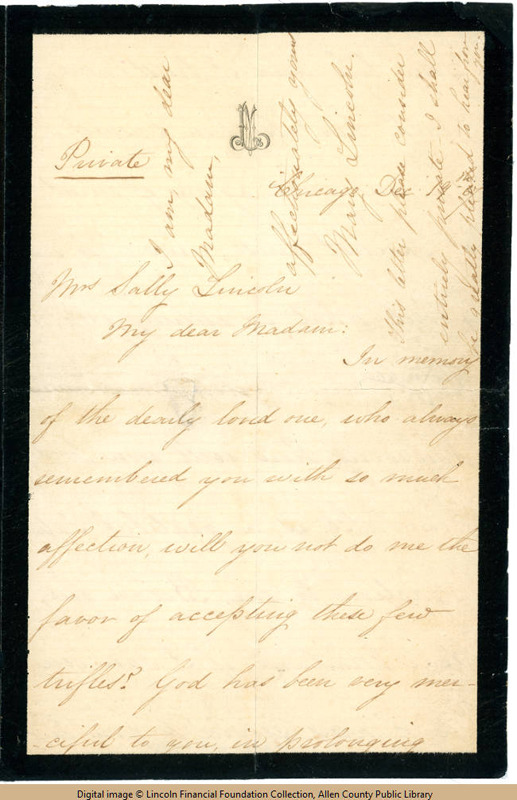 Private
Chicago, Dec
Mrs Sally Lincoln
My dear Madam:
In memory
of the dearly loved one, who always
remembered you with so much
affection, will you not do me the
favor of accepting these few
trifles? God has been very mer-
-ciful to you, in prolonging
I am, my dear
Madam,
affectionately yours
Mary Lincoln.
This letter please consider
entirely private - I shall
be greatly pleased to hear from
you.
Digital image © Lincoln Financial Foundation Collection, Allen County Public Library